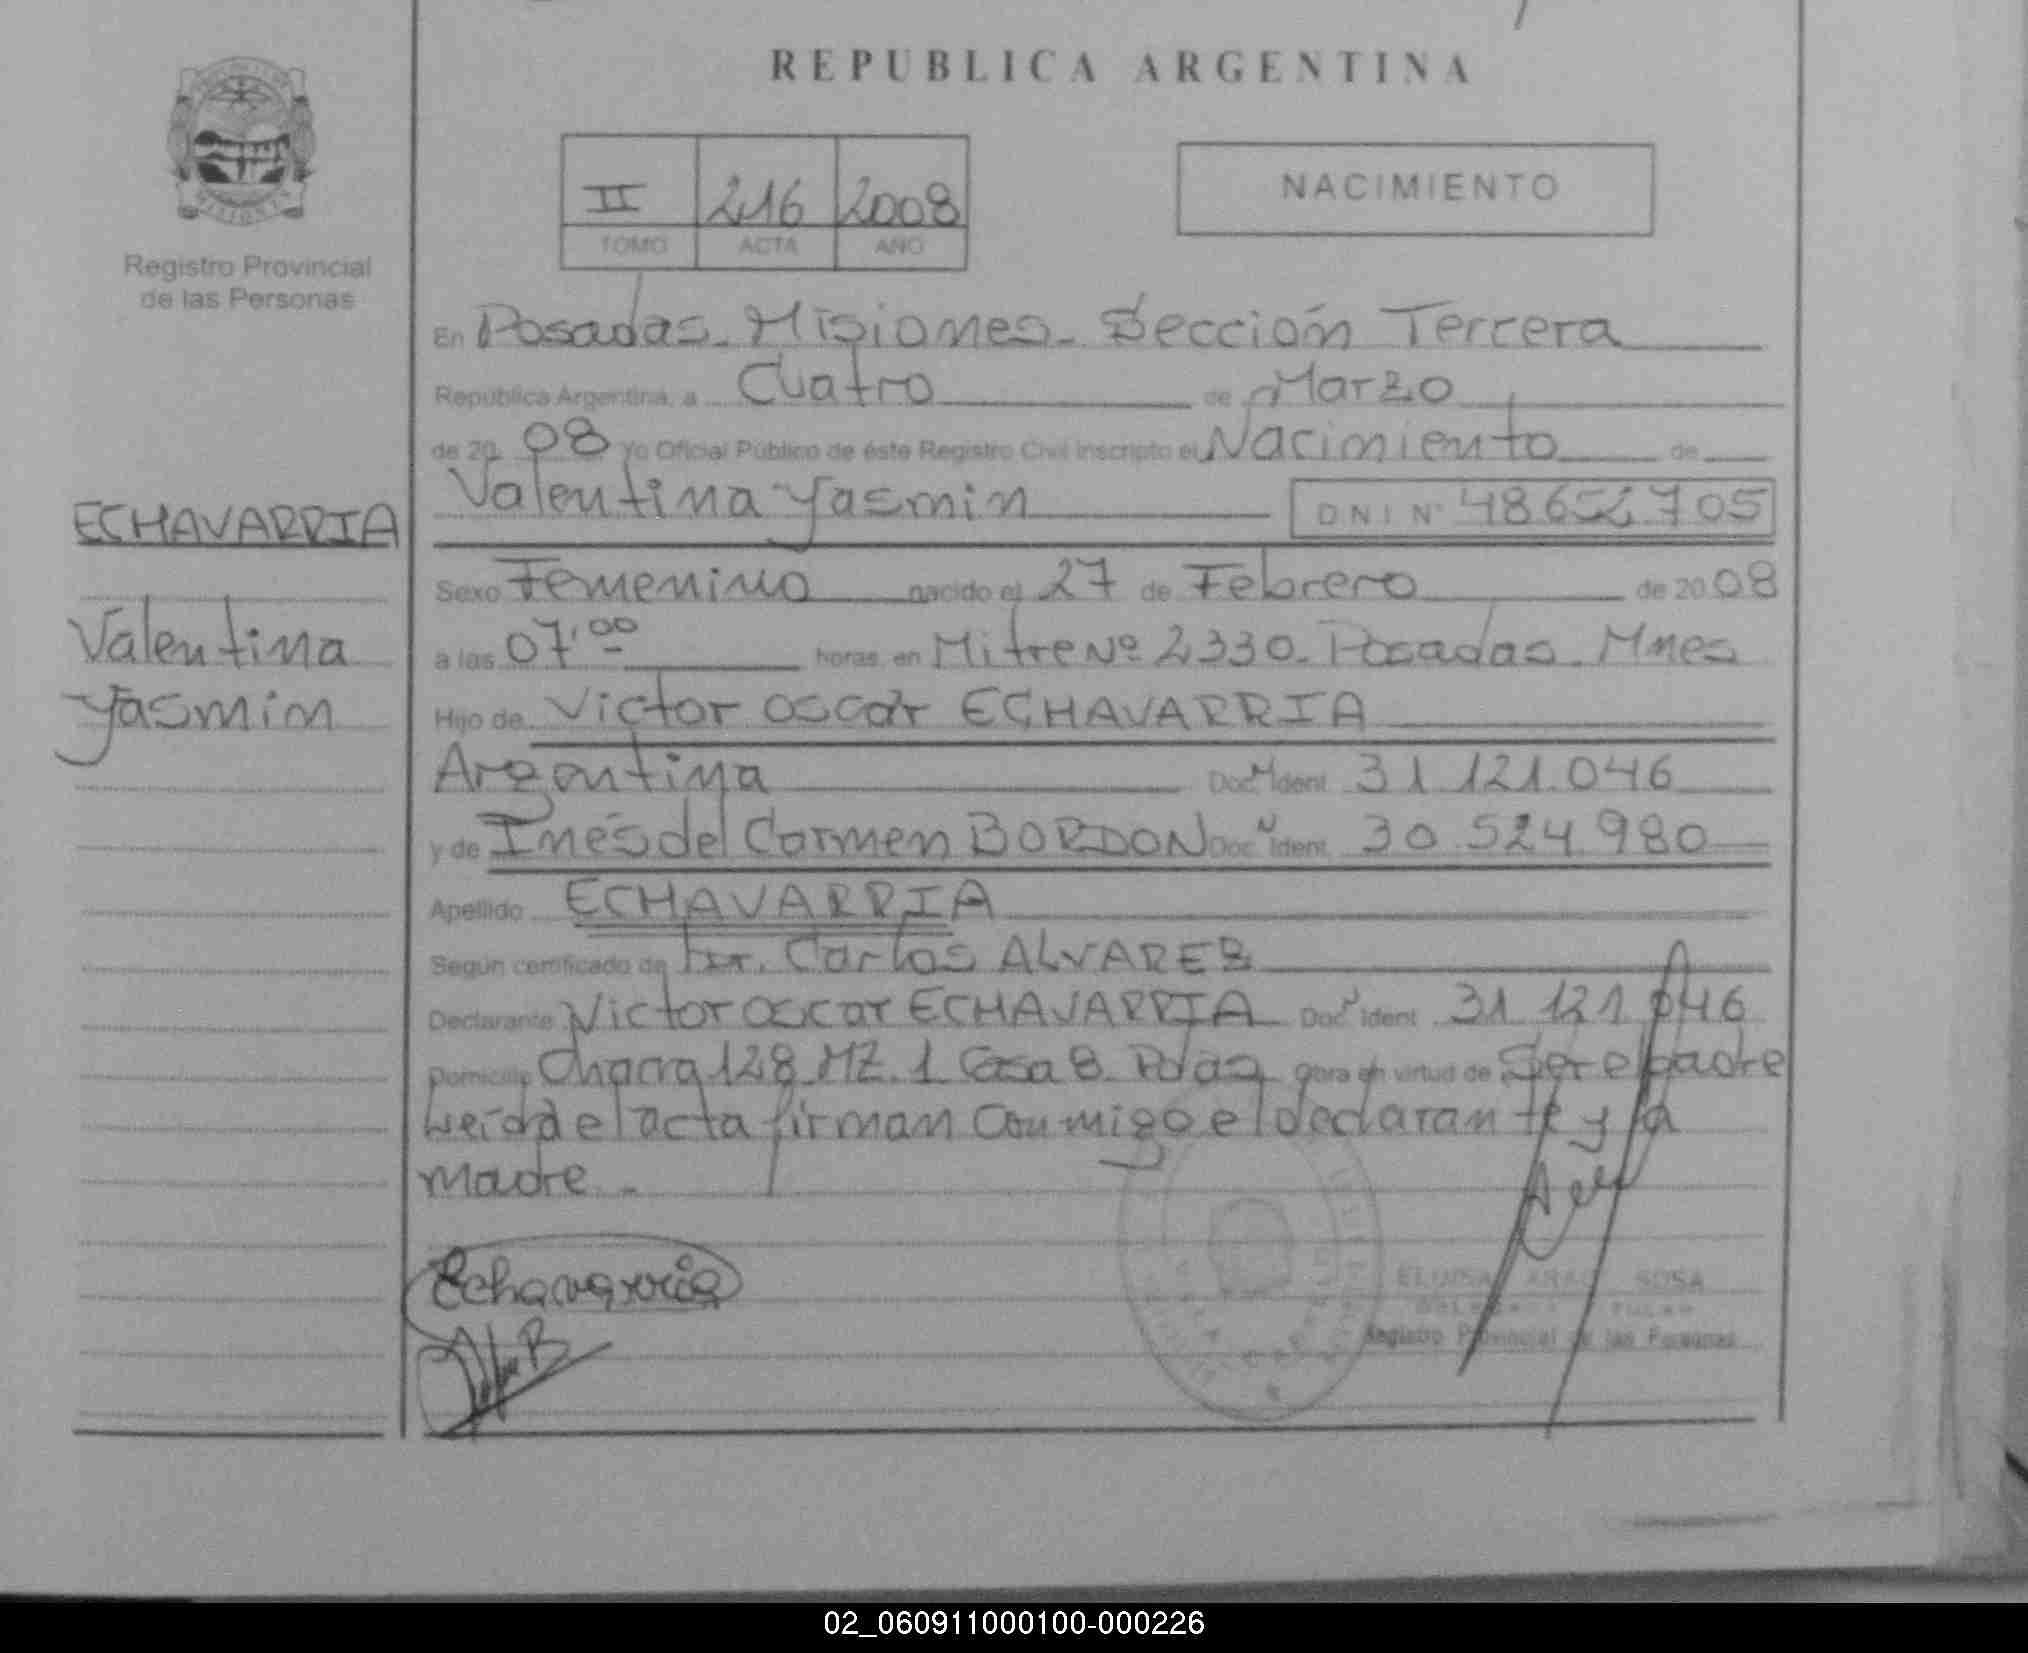 REPUBLICA ARGENTINA
II 216 2008
TOMO ACTA AÑO
NACIMIENTO
MISIONES
Registro Provincial
de las Personas
En Posadas. Misiones. Sección Tercera
República Argentina, a Cuatro de Marzo
de 20 08 Yo Oficial Público de éste Registro Civil inscripto el Nacimiento de
Valentina Yasmin DNI Nº 48652705
ECHAVARRIA
Valentina
Yasmin
Sexo Femenino nacido el 27 de Febrero de 20 08
a las 07:00 horas en Mitre Nº 2330. Posadas. Mnes
Hijo de Victor Oscar ECHAVARRIA
Argentina Doc. N Ident. 31 121.046
y de Inés del Carmen BORDON Doc. N Ident. 30.524.980
Apellido ECHAVARRIA
Según certificado de Dr. Carlos ALVAREZ
Declarante Victor Oscar ECHAVARRIA Doc. N Ident. 31 121 046
Domicilio Chacra 128 MZ. 1 Casa 8. Pdas Obra en virtud de Ser el padre
Leída el acta firman conmigo el declarante y la
madre. -
Echavarria
ELUISA SOSA
Registro Provincial de las Personas
02_060911000100-000226